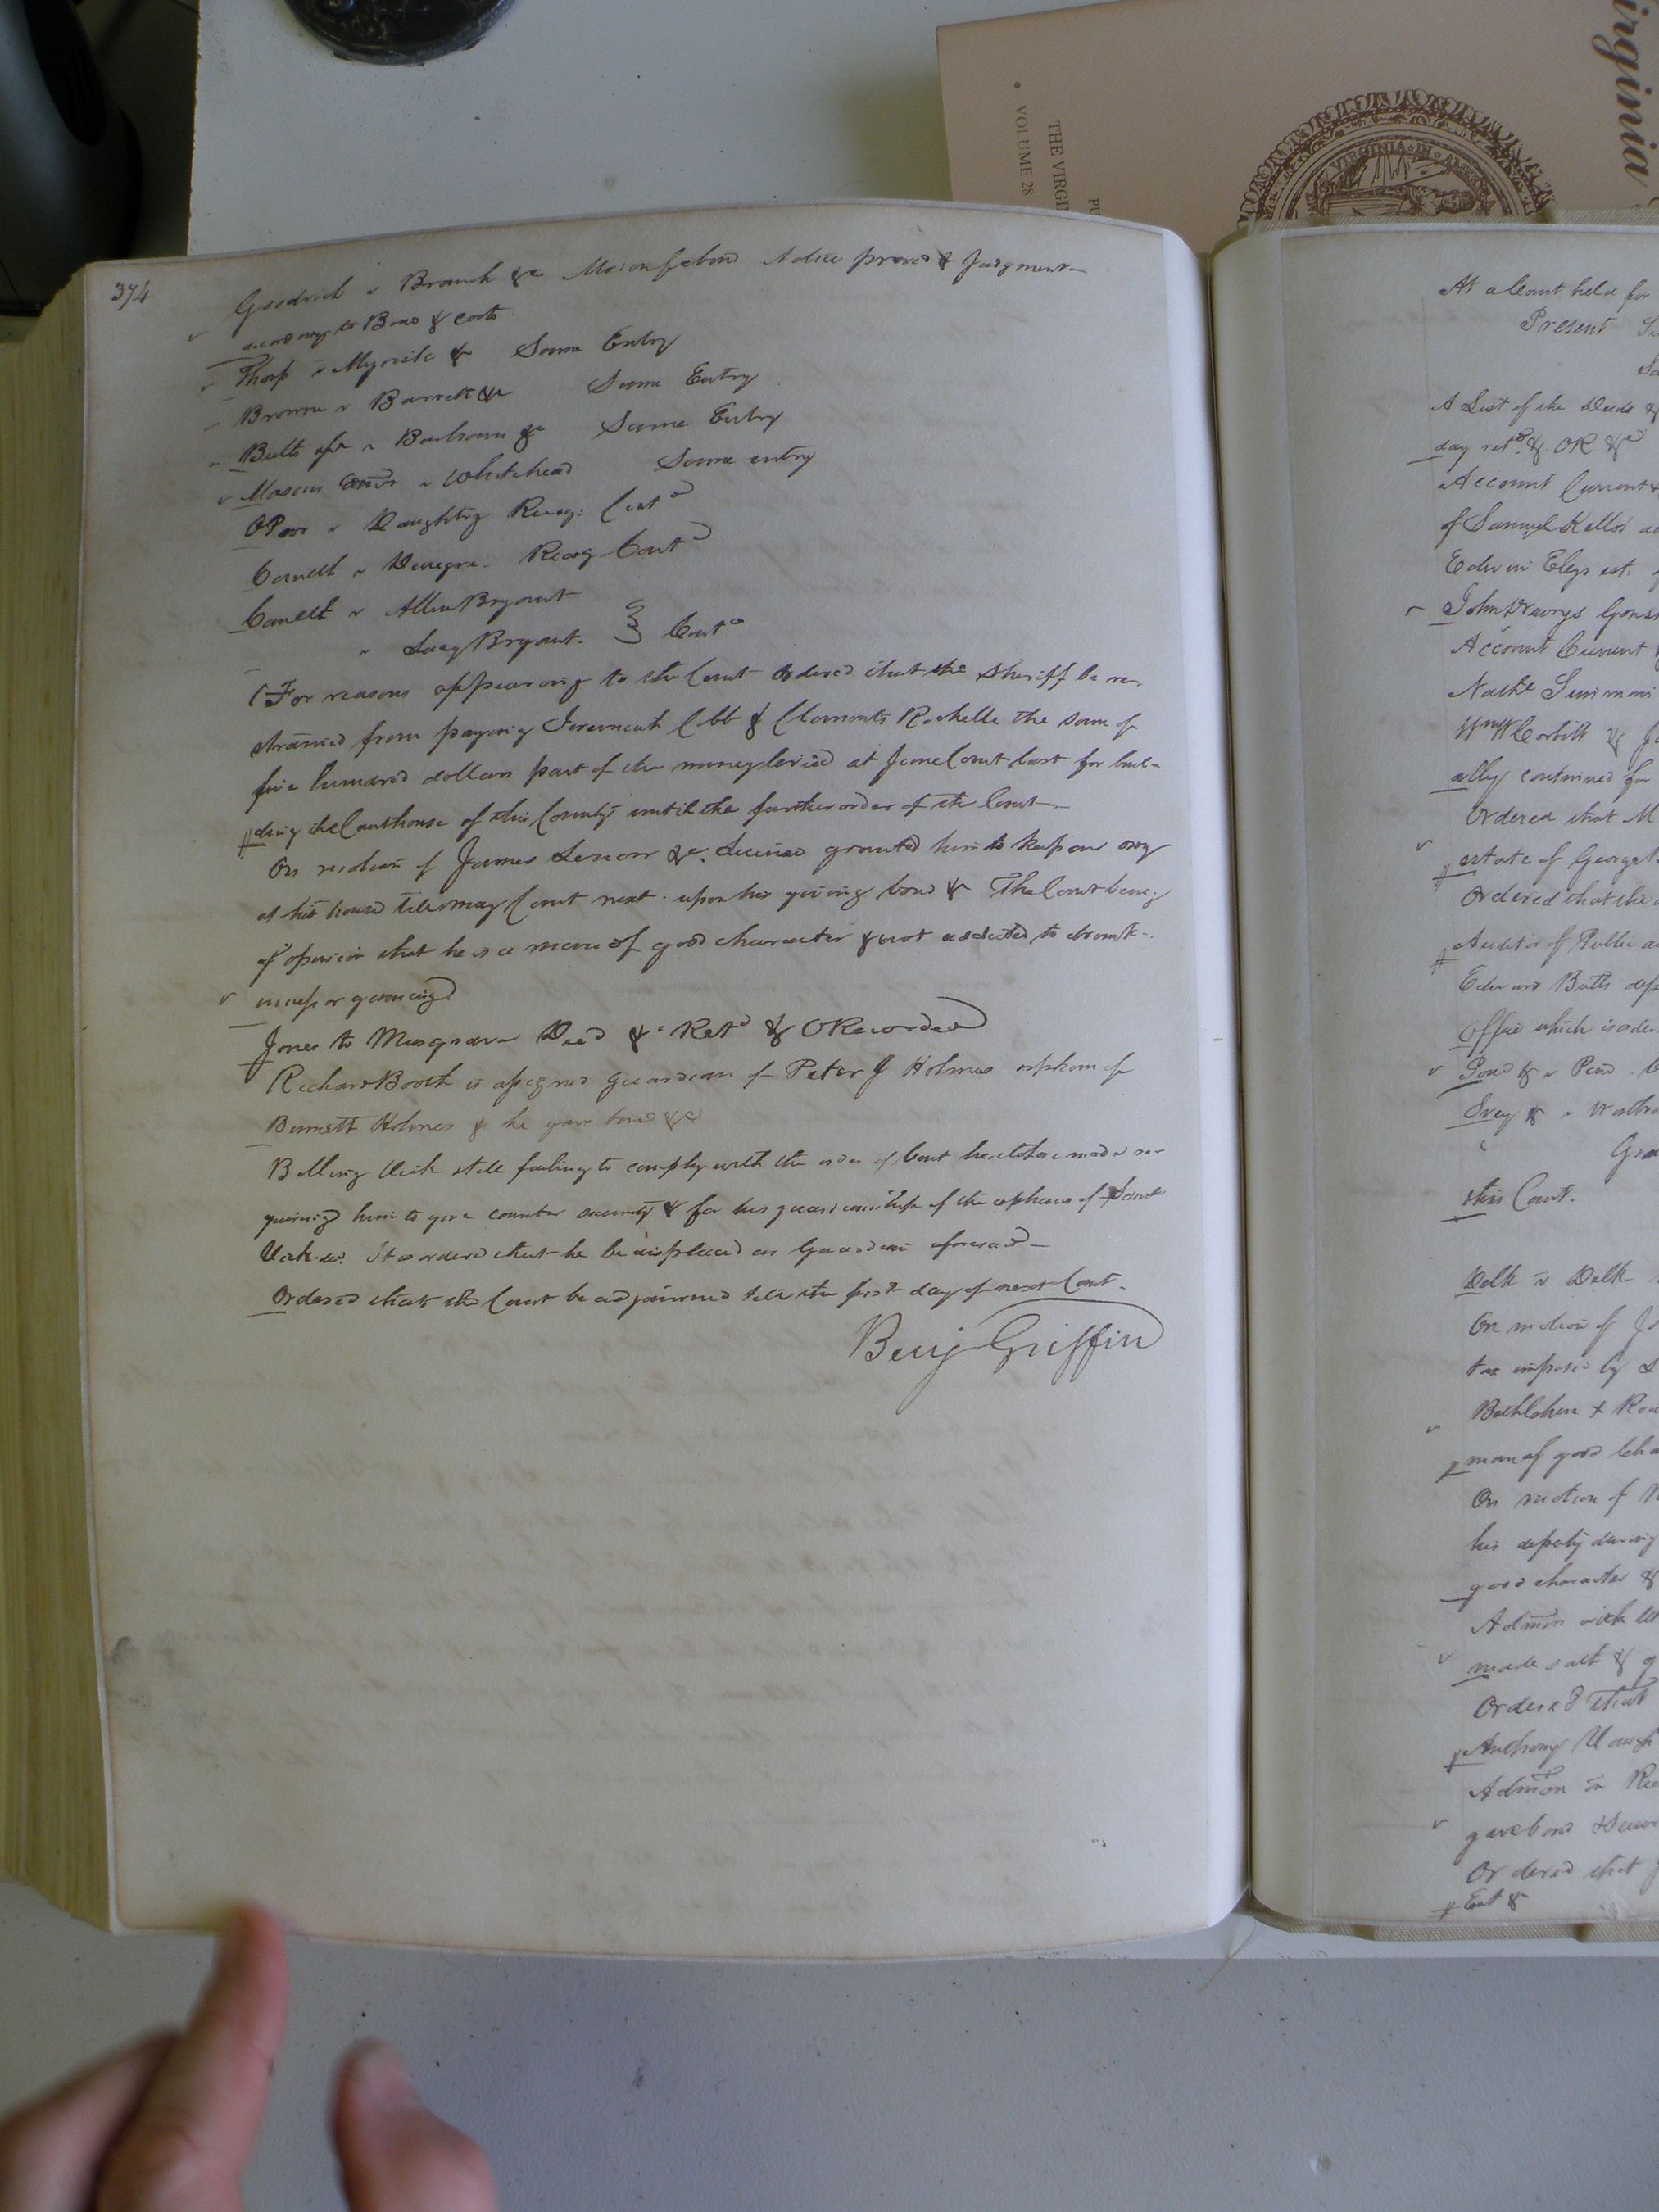 Virginia
THE VIRGIN
VOLUME 28
PU
VIRGINIA IN
374
Goodrich v Branch &c Mo: on f. bond Notice proved & Judgment
according to Bond & costs
Tharp v Myrick & Same Entry
Browne v Barrett &c Same Entry
Butts v &c Same Entry
Mason v Whitehead Same entry
OPoor v Daughtry Recog: Contd
v Recog Contd
v Allen Bryant
" Lucy Bryant. } Contd
For reasons appearing to the Court ordered that the Sheriff be re-
strained from paying Jeremiah Cobb & Clements Rochelle the sum of
five hundred dollars part of the money levied at June Court last for buil-
ding the Courthouse of this County until the further order of the Court
On motion of James &c. License granted him to keep an ordy
at his house till may Court next upon his giving bond & The Court being
of opinion that he is a man of good character & not addicted to drunk-
enness or gameing
Jones to Musgrave Deed &c Retd & ORecorded
Richard Booth is assigned guardian of Peter J Holmes orphan of
Bennett Holmes & he gave bond &c
Bolling still failing to comply with the order of Court heretofore made re-
quiring him to give counter security & for his guardianship of the orphans of
decd. It is ordered that he be displaced as Guardian aforesaid
Ordered that the Court be adjourned till the first day of next Court.
Benj Griffin
At a Court held for
Present
A List of the Deeds &
day retd. & OR &c
Account Current &
of Samuel Kello's
Edwin Eleys est.
John Drurys
Account Current
Nathl Simmons
Wm W Corbitt & J
ally continued for
Ordered that M
estate of George
Ordered that the
Auditor of Public
Edward Butts dep
Office which is
Pond & v Pond
Ivey & v
this Court.
Delk v Delk
On motion of Jo
tax imposed by
Bethlehem +
man of good
On motion of
his deputy during
good character &
Admon with
made oath & g
Ordered that
Anthony
Admon
gave bond &
Ordered that
Est &